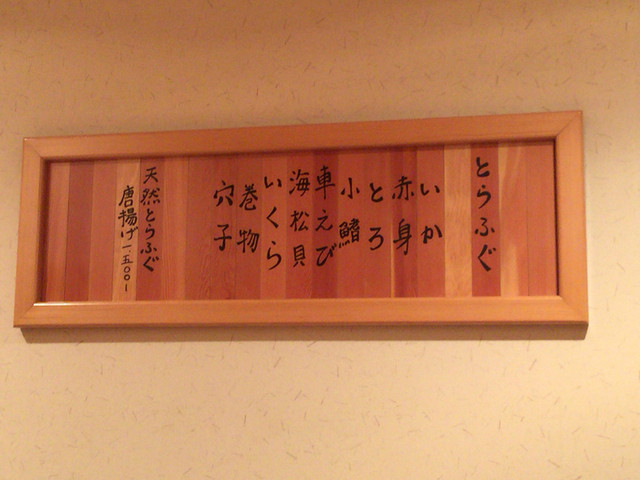 とらふぐ
いか
赤身
とろ
小鰭
車えび
海松貝
いくら
巻物
穴子
天然とらふぐ
唐揚げ一、五〇〇ー